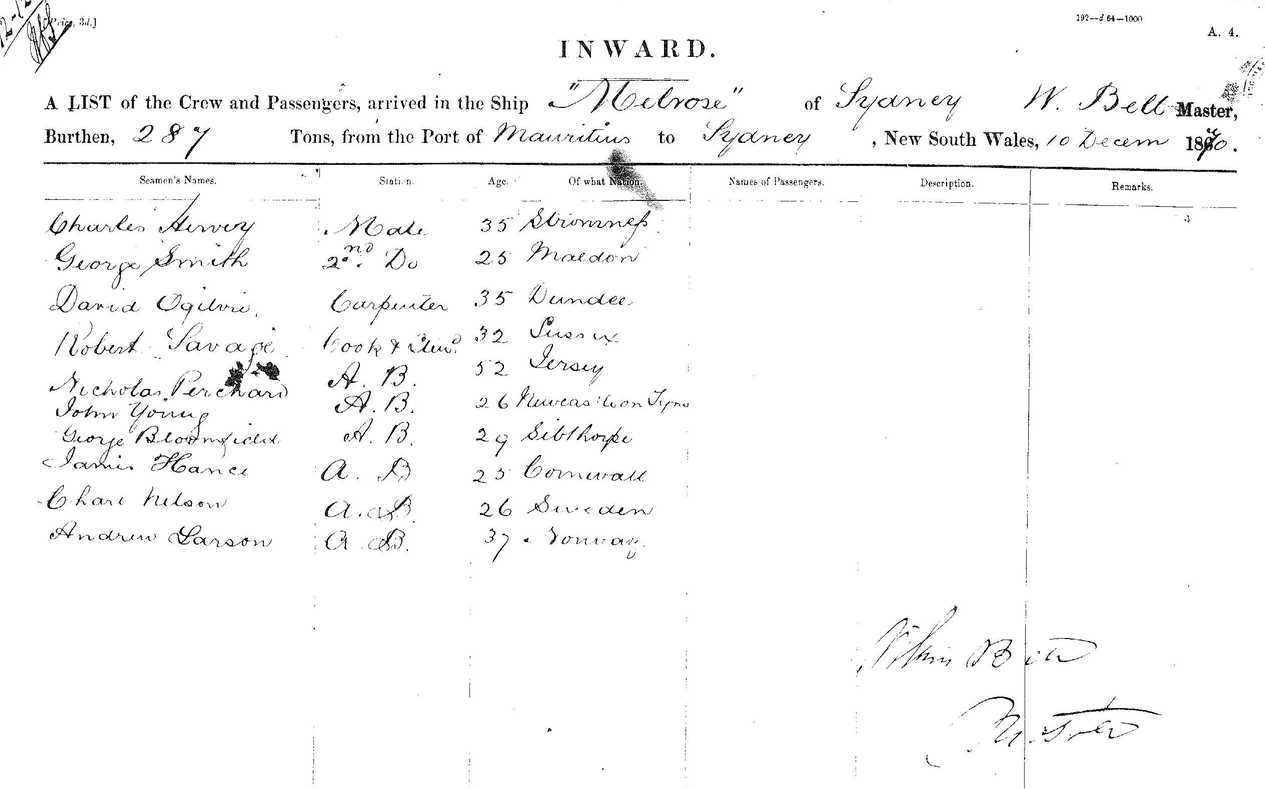 [Price, 3d.]
192—d 64—1000
A. 4.
INWARD.
A LIST of the Crew and Passengers, arrived in the Ship "Melrose" of Sydney W. Bell Master,
Burthen, 287 Tons, from the Port of Mauritius to Sydney, New South Wales, 10 Decem 1870.
Seamen's Names. Station. Age. Of what Nation. Names of Passengers. Description. Remarks.
Charles Hervey Mate 35 Stromness
George Smith 2nd Do 25 Maldon
David Ogilvie Carpenter 35 Dundee
Robert Savage Cook & Stewd 32 Sussex
Nicholas Perchard A. B. 52 Jersey
John Young A. B. 26 Newcastle on Tyne
George Bloomfield A. B. 29 Sibthorpe
James Hance A. B 25 Cornwall
Nelson A. B. 26 Sweden
Andrew Larson A. B. 37 Norway.
Bell
Master